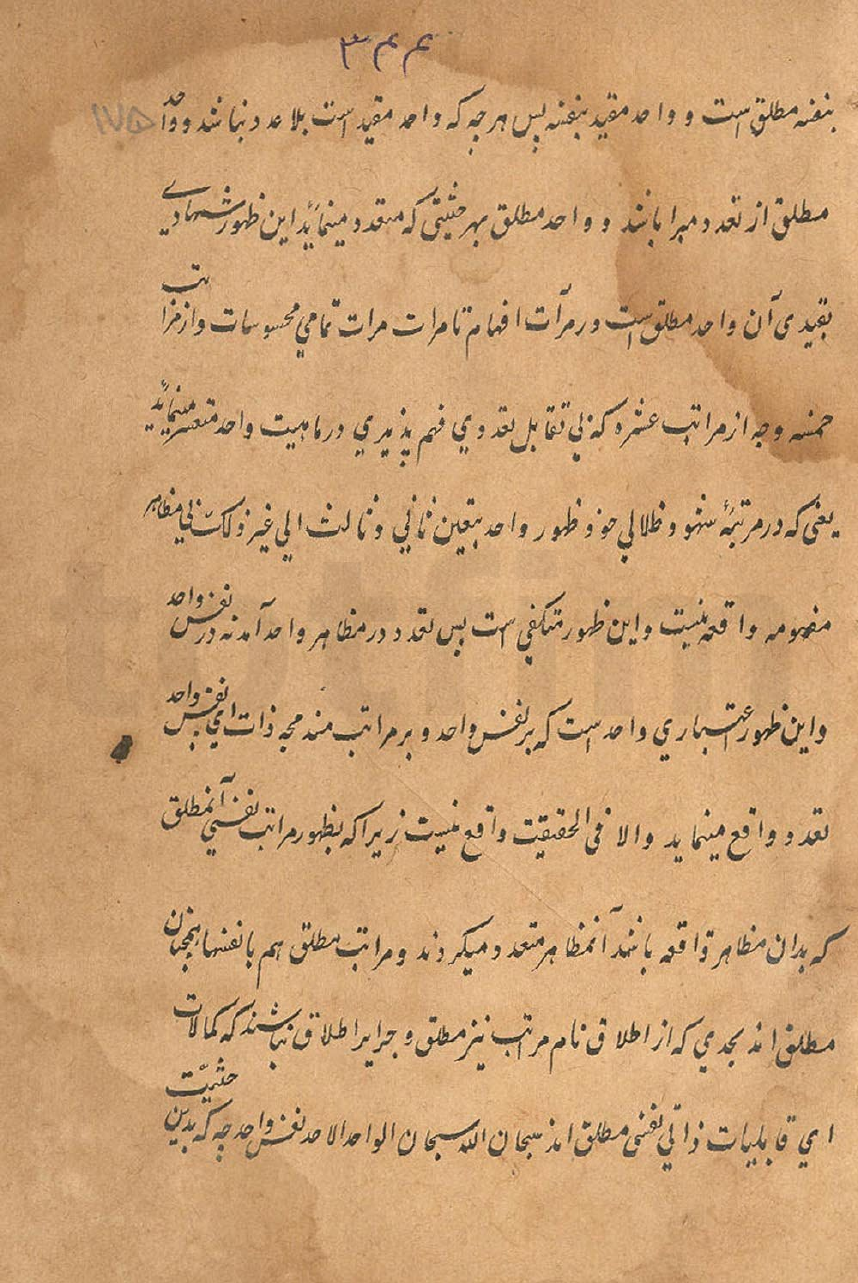 ۳۴۴
۱۷۵
بنفسه مطلق است و واحد مقید بنفسه پس هرچه که واحد مقید است بلا عدد نباشد و واحد
مطلق از تعدد مبرا باشد و واحد مطلق بهر حثیتی که متعدد مینماید این ظهور شهادی
بقیدی آن واحد مطلق است در مرآت افهام تا مرات مرات تمامی محسوسات و از مراتب
خمسه وجه از مراتب عشره که بی تقابل تعددی فهم پذیری در ماهیت واحد متعسر مینماید
یعنی که در مرتبهٔ و ظلالی خو و ظهور واحد بتعین ثانی و ثالث الی غیر ذلک بی مظاهر
مفهومه واقعه نیست و این ظهور است پس تعدد در مظاهر واحد آمد نه در نفس واحد
و این ظهور اعتباری واحد است که بر نفس واحد و بر مراتب ذات ای نفس واحد
تعدد واقع مینماید والا فی الحقیقت واقع نیست زیرا که بظهور مراتب نفسی آنمطلق
که بدان مظاهر واقعه باشد آنمظاهر متعدد میکردند و مراتب مطلق هم بانفسها همچنان
مطلق اند بحدی که از اطلاق نام مراتب نیز مطلق و جز ایراطلاق نباشند که کمالات
ای قابلیات ذاتی نفسی مطلق اند سبحان الله سبحان الواحد الاحد نفس واحد چه که بدین حثیّت